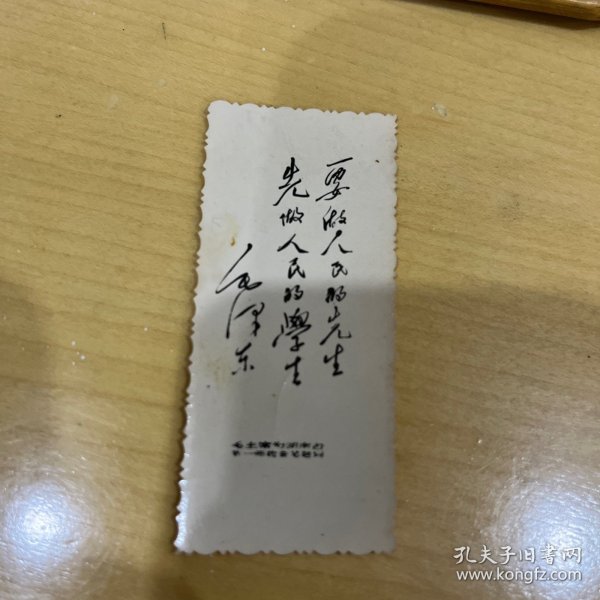 要做人民的先生
先做人民的學生
毛泽东
孔夫子旧书网
www.kongfz.com